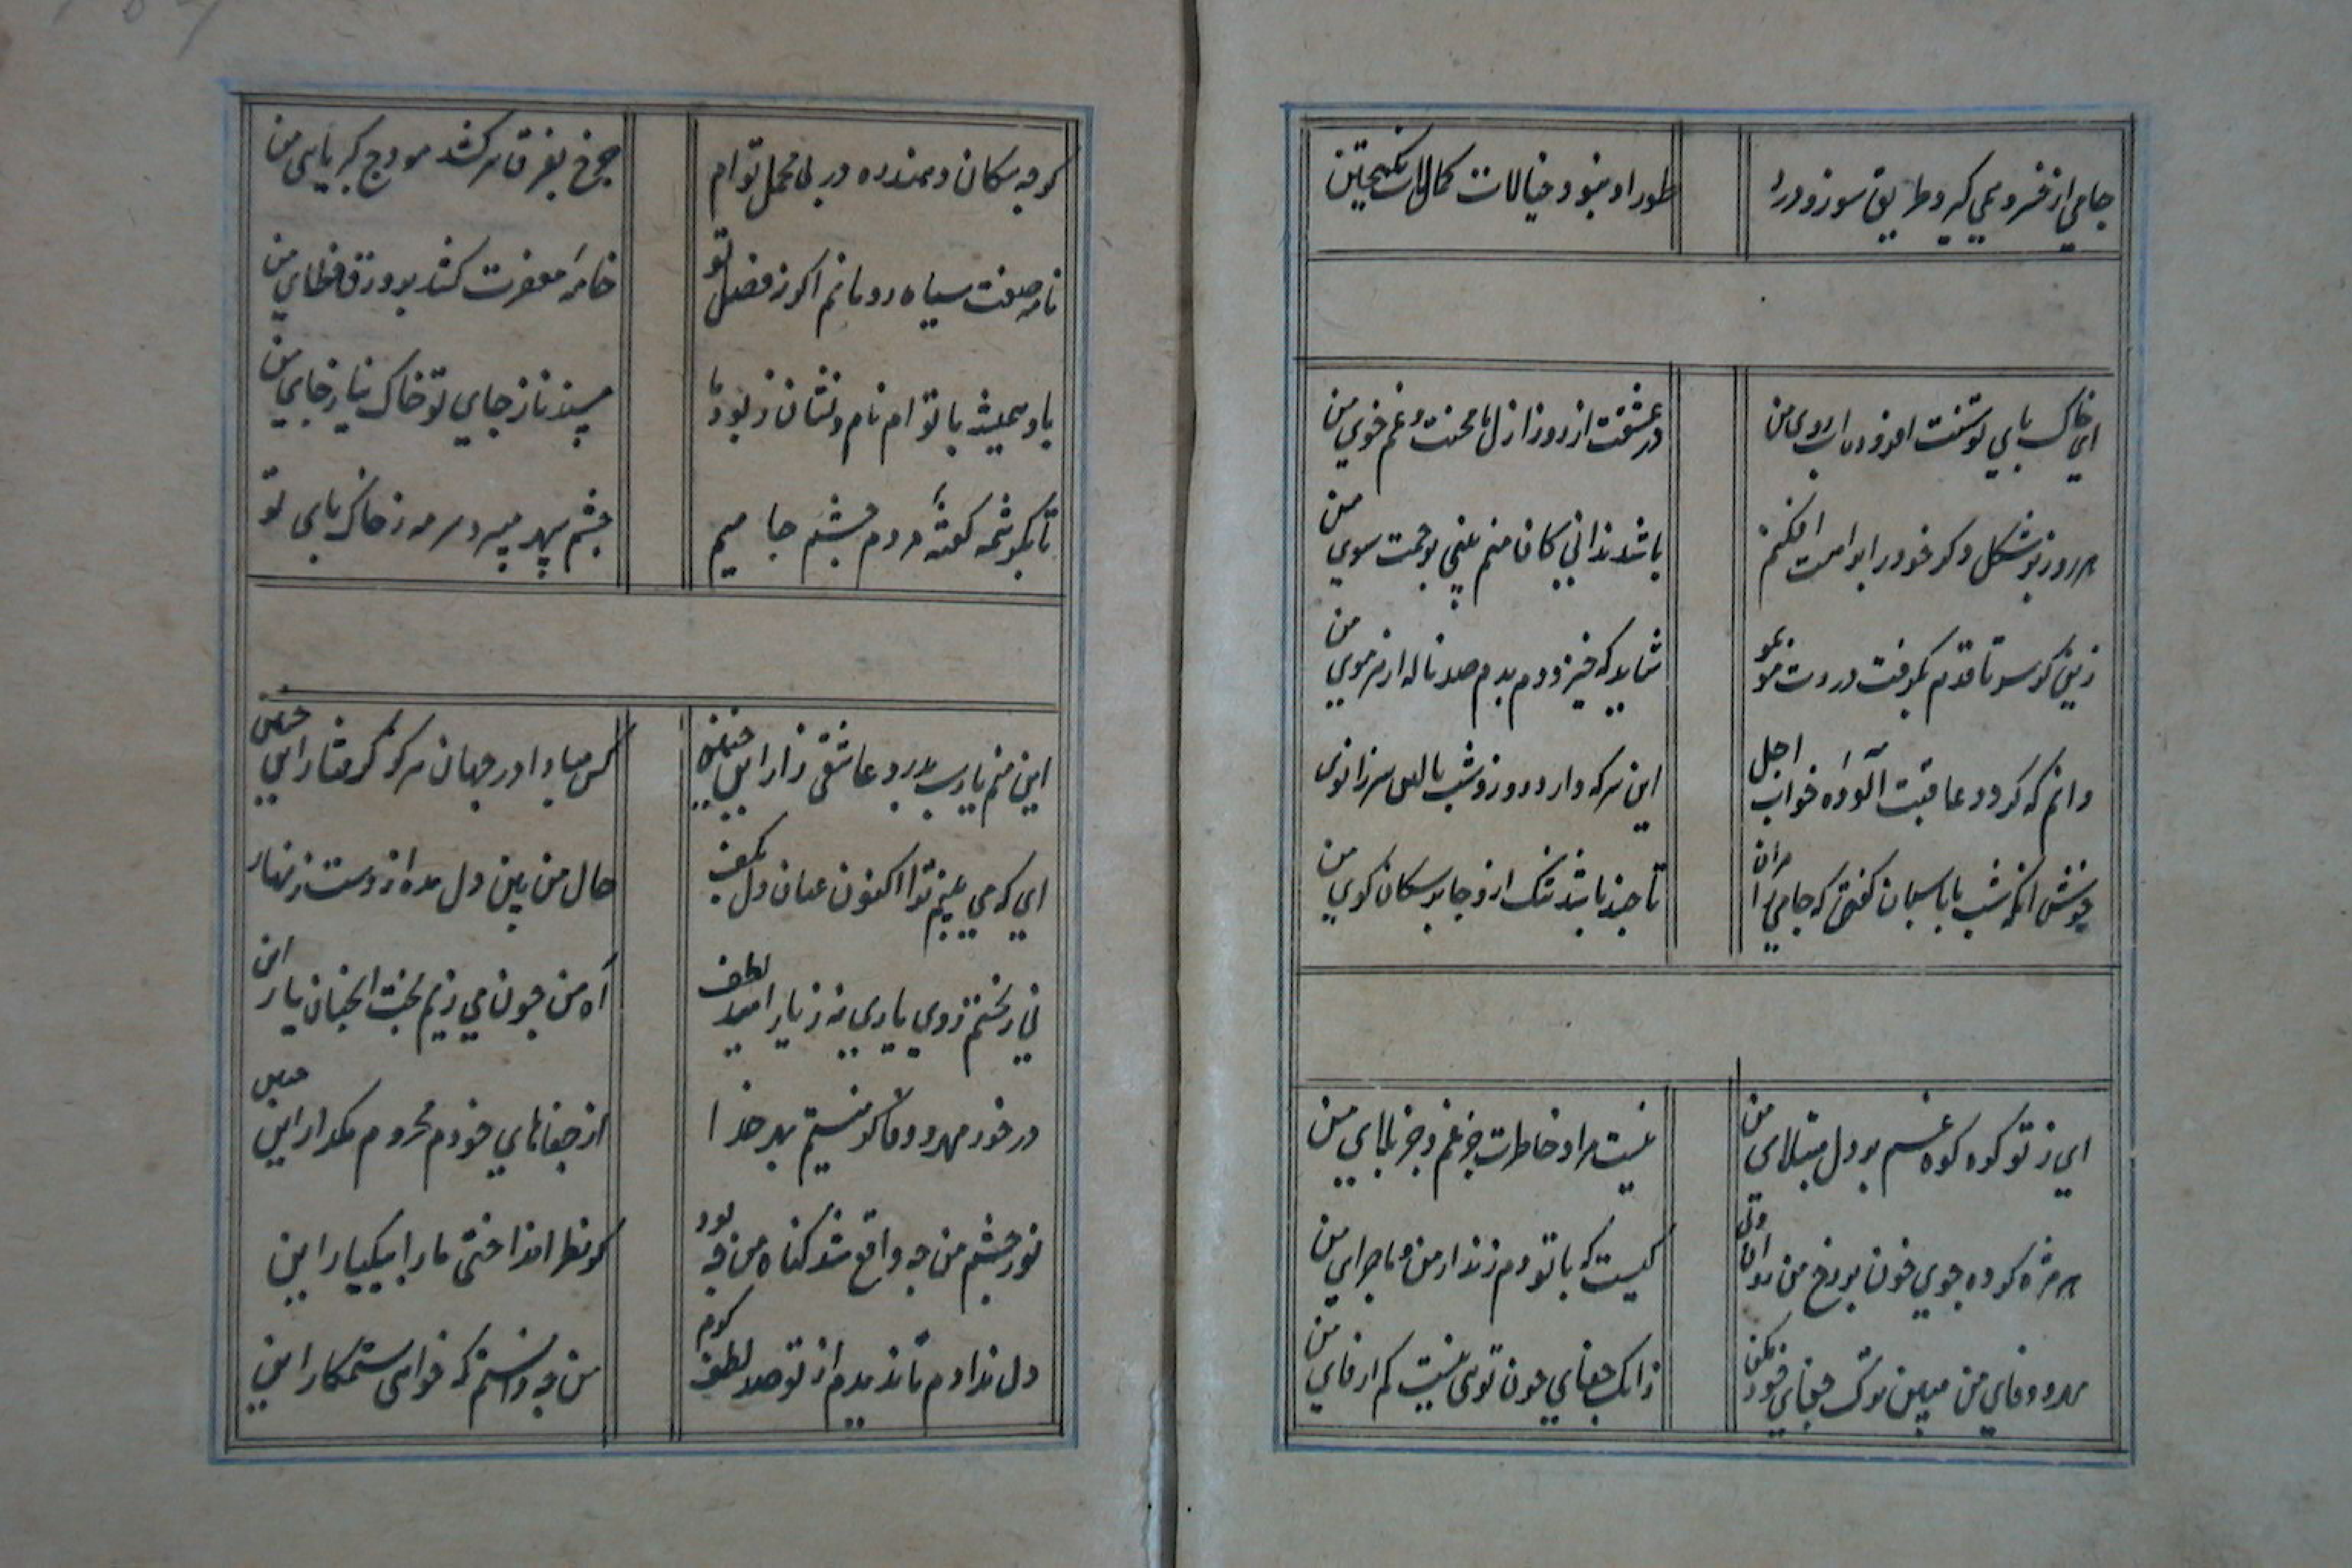 جامی از خسرو همی گیرد طریق سوز و درد
طور او نبود خیالات کمال انگیختن
ای خاک پای توسنت افزوده آب روی من
در عشقت از روز ازل با محنت و غم خوی من
هر روز بر شکل دگر خود را براهت افکنم
باشد ندانی کان منم بینی برحمت سوی من
زینکو سر تا قدم بگرفت دردت مو بمو
شاید که خیزد دم بدم صد ناله از هر موی من
دانم که گردد عاقبت آلوده خواب اجل
این سر که دارد روز و شب بالین سر زانوی من
خوش آنکه شب با پاسبان گفتی که جامی را مران
تا چند باشد تنگ ازو جا بر سکان کوی من
ای ز تو کوه کوه غم بر دل مبتلای من
نیست مراد خاطرت جز غم و جز بلای من
هر مژه کرده جوی خون بر رخ من روان ولی
کیست که با تو دم زند از من و ماجرای من
مهر و وفای من مبین ترک جفای خود مکن
زانک جفای چون توئی نیست کم از وفای من
گرچه سگان دهندره در پی محمل توام
چرخ بفرق سر کشد هودج کبریای من
نامه صفت سیاه رو مانم اگر ز فضل تو
خامه مغفرت کشد بر ورق خطای من
باد همیشه با توام نام و نشان ز بود ما
مسند ناز جای تو خاک نیاز جای من
تا بکرشمه گفته مردم چشم جامیم
چشم سپهر میبرد سرمه ز خاک پای تو
این منم یارب بدرد عاشقی زار اینچنین
کس مبادا در جهان هرگز گرفتار اینچنین
ای که می بینم ترا اکنون عنان دل بکف
حال من بین دل مده از دست زنهار
نی ز بختم روی یاری نه ز یار امید لطف
آه من چون می زیم بخت آنچنان یار این
در خور مهر و وفا گر نیستم بهر خدا
از جفاهای خودم محروم مگذار اینچنین
نور چشم من چه واقع شد گناه من چه بود
کز نظر انداختی ما را بیکبار این
دل ندادم تا ندیدم از تو صد لطف و کرم
من چه دانستم که خواهی ستمکار این